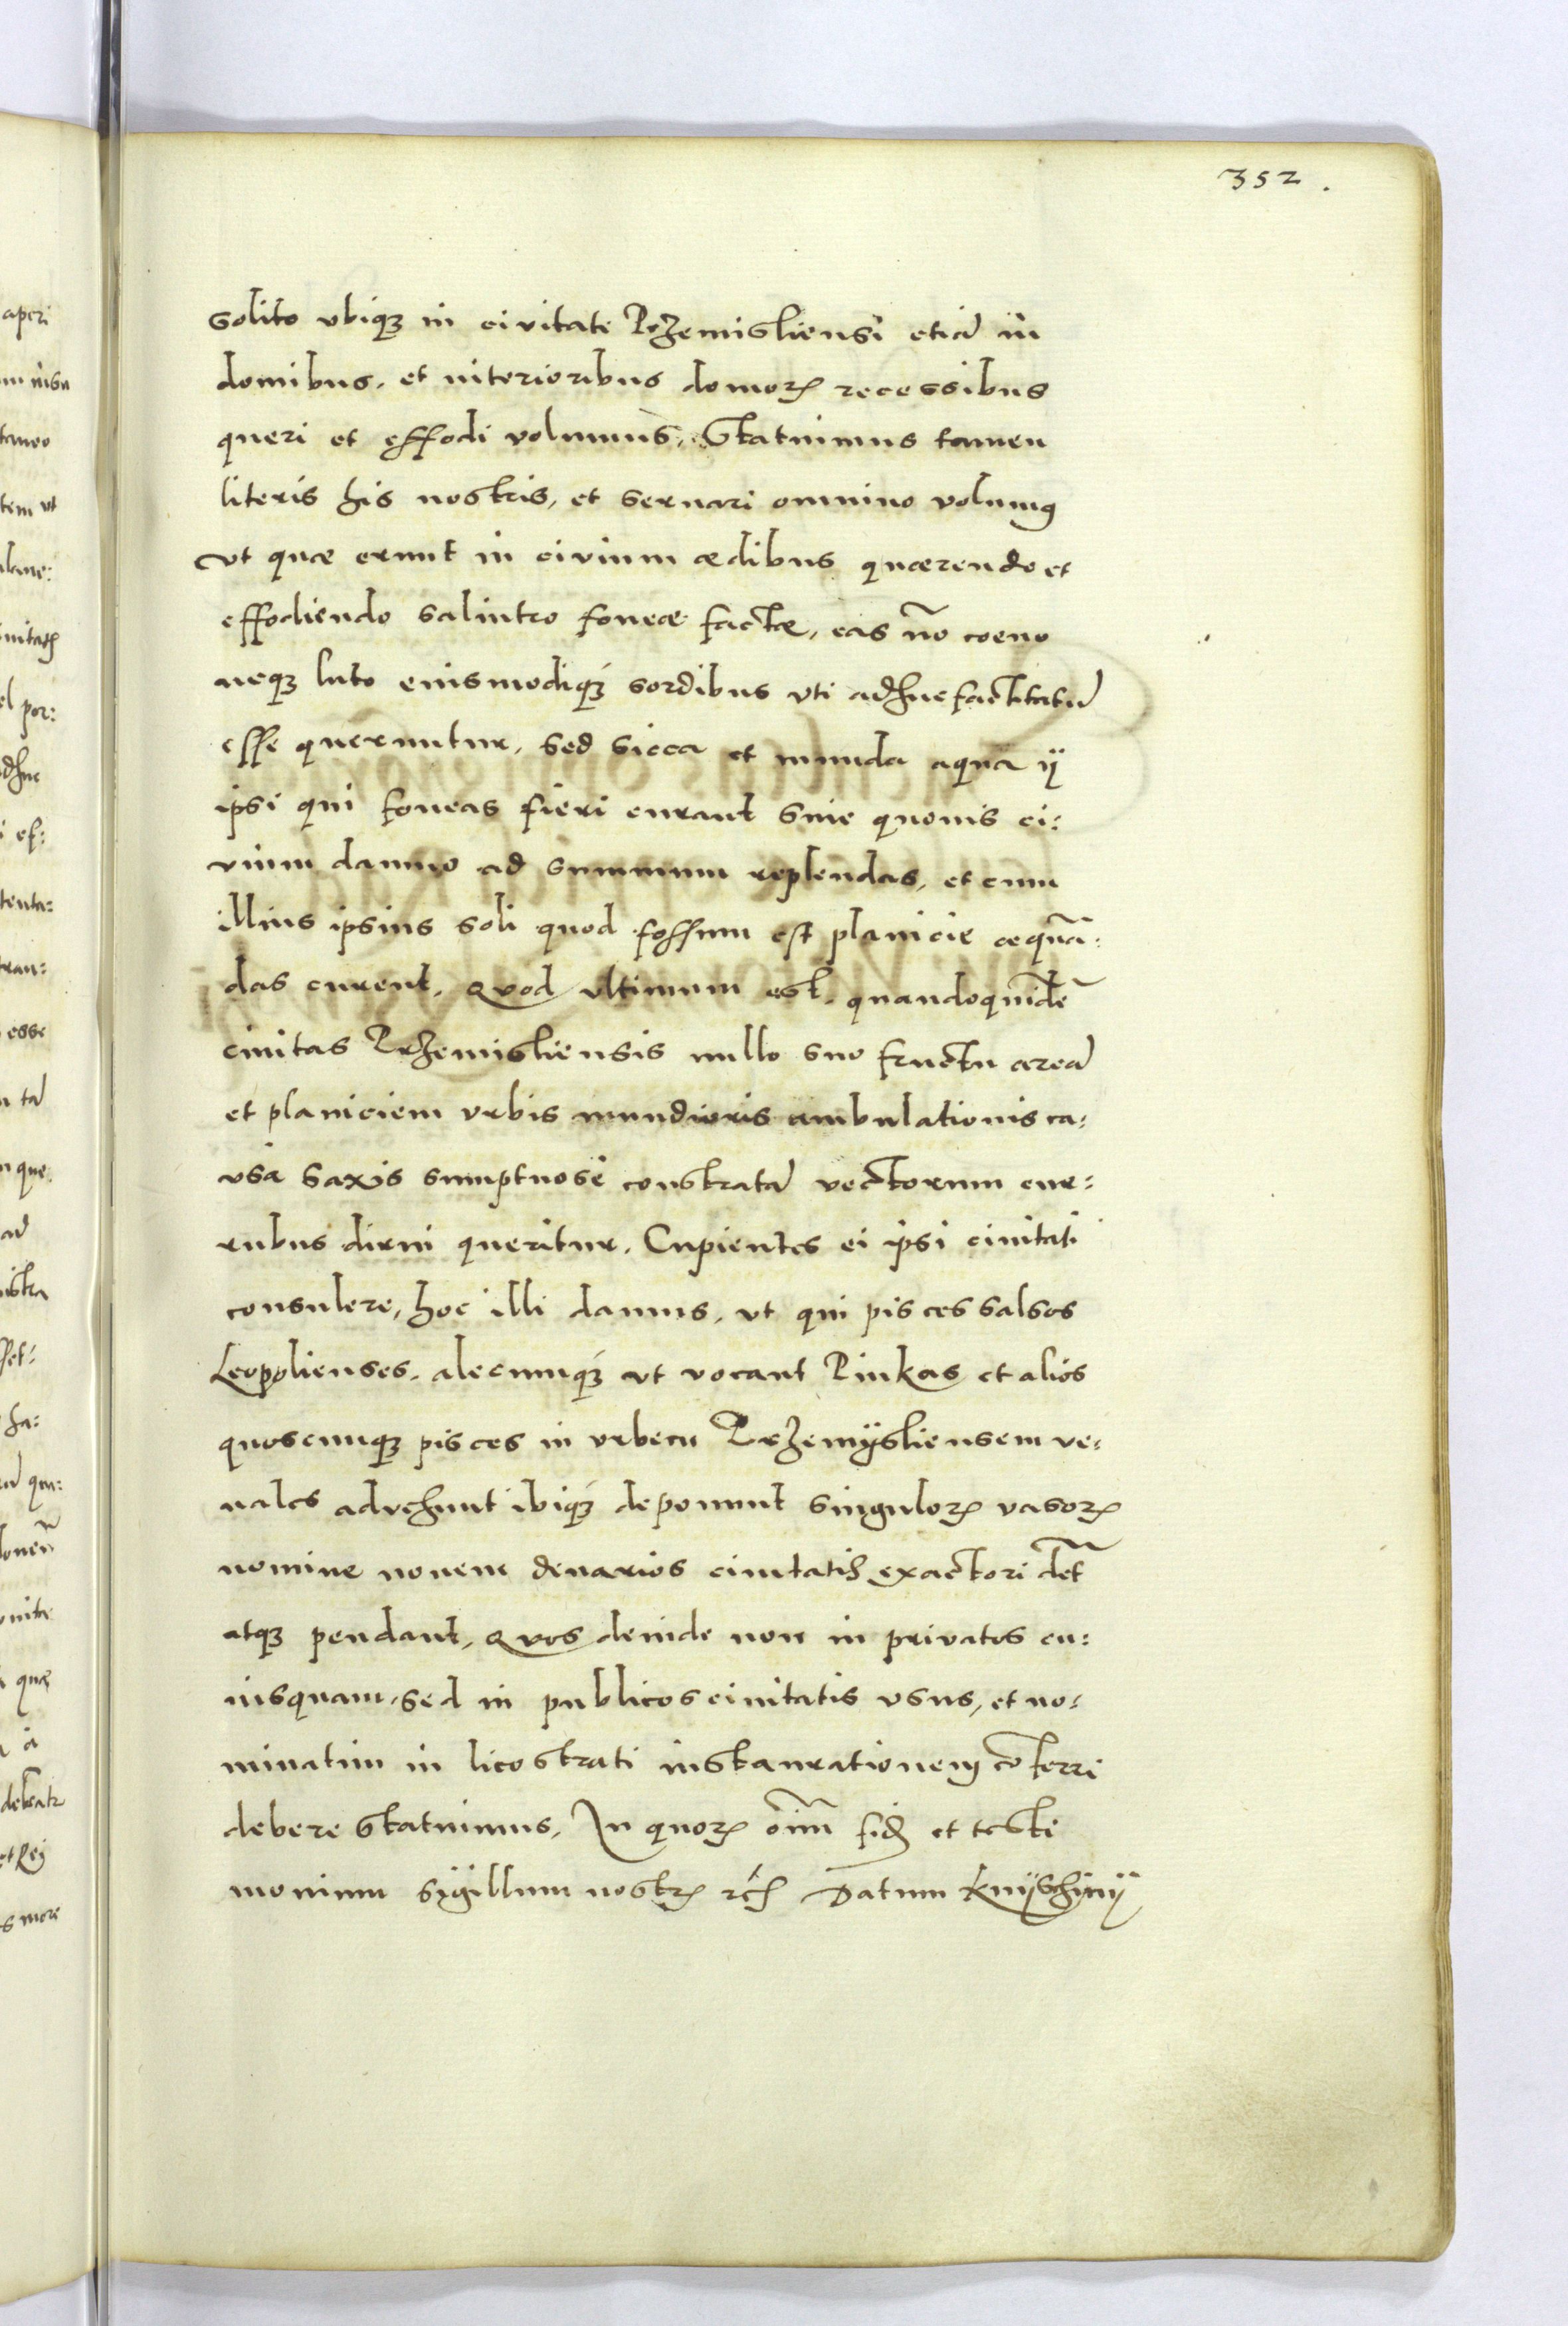 352.
solito vbiq3 in civitate Przemisliensi etiā in
domibus, et interioribus domorꝝ recessibus
queri et effodi volumus, Statuimus tamen
literis his nostris, et seruari omnino volumꝰ
vt quæ erunt in civium ædibus quærendo et
effodiendo salnitro foueæ factæ, eas nō coeno
neq3 luto eiusmodiq3 sordibus vti adhuc factitatū
esse queruntur, sed sicca et munda aqua ij
ipsi qui foueas fieri curant sine quouis ci:
vium damno ad summum replendas, et cum
illius ipsius soli quod fossum est planicie æquā:
das curent. Quod vltimum est, quandoquidē
ciuitas Przemisliensis nullo suo fructu areā
et planiciem vrbis mundioris ambulationis ca:
vsa saxis sumptuose constratā vectorum cur:
rubus dirui queritur. Cupientes ei ipsi ciuitati
consulere, hoc illi damus, vt qui pisces salsos
Leopolienses, alecumq3 vt vocant Pinkas et alios
quoscunq3 pisces in vrbem Przemÿsliensem ve:
nales advehunt ibiq3 deponunt singulorꝝ vasorꝝ
nomine novem denarios ciuitatis exactori dēt
atq3 pendant, Quos deinde non in privatos cu:
iusquam, sed in publicos ciuitatis vsus, et no:
minatim in licostrati instaurationem cōferri
debere statuimus. In quorꝝ oīm fidē et testi
monium sÿgillum nostrꝝ rc̄ Datum Knÿschÿnÿ